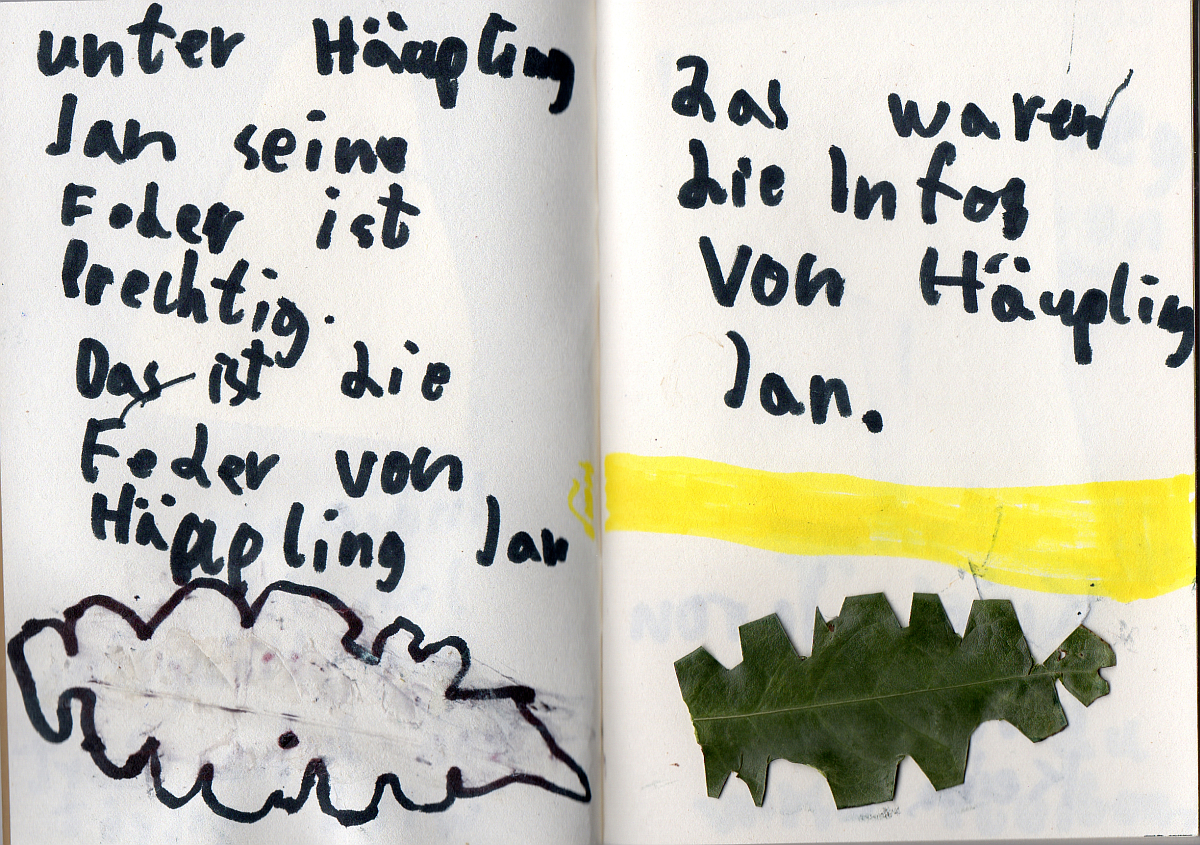 unter Häupling
Jan seine
Feder ist
Prechtig.
Das ist die
Feder von
Häupling Jan
Das waren
die Infos
von Häupling
Jan.